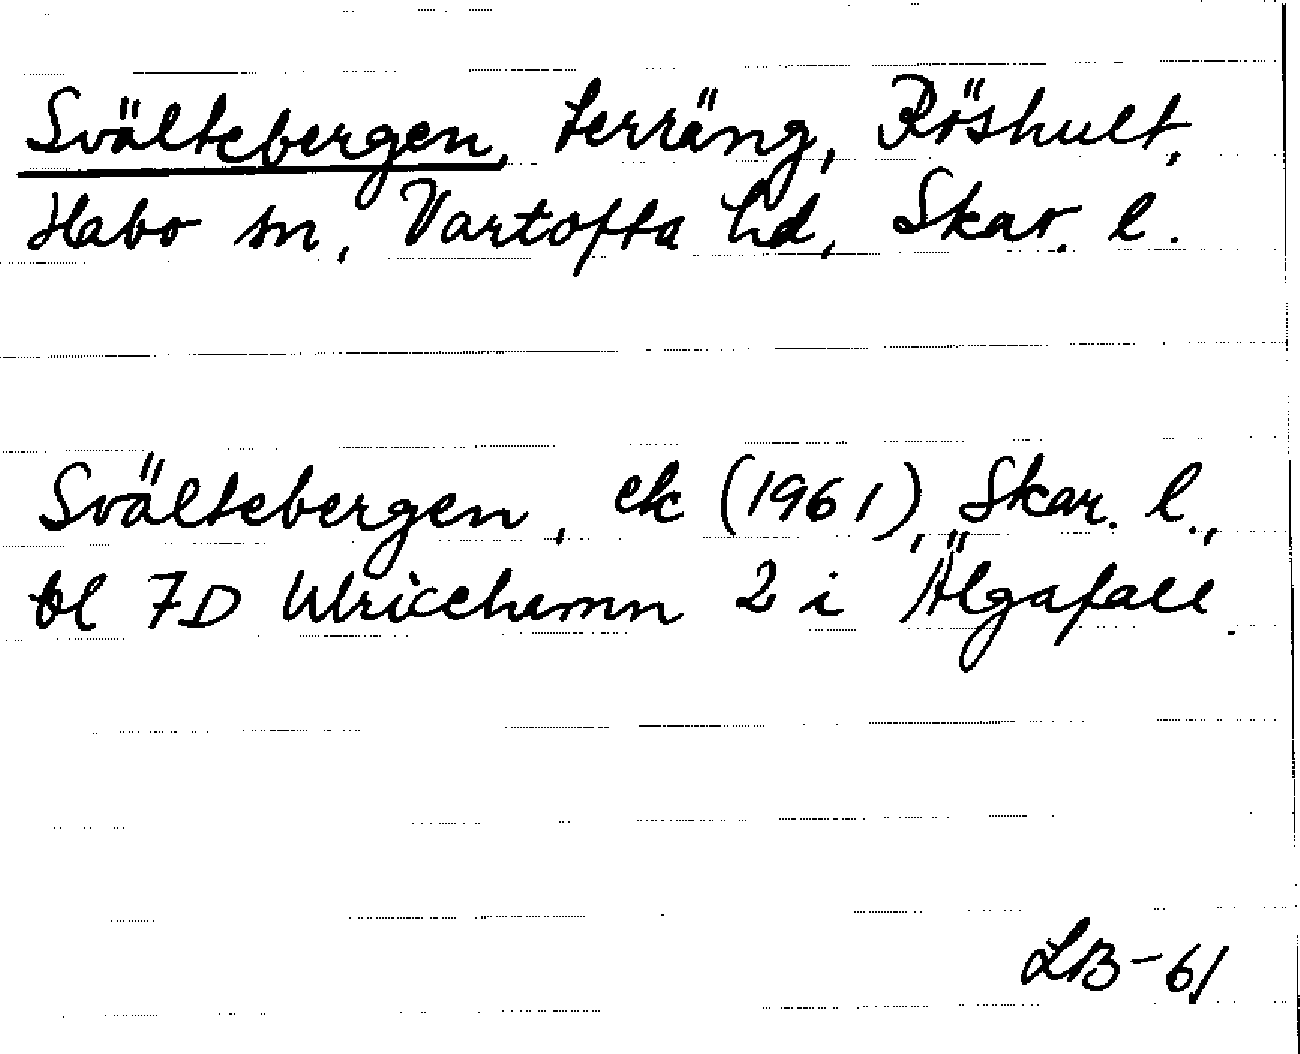 Svältebergen, terräng, Röshult,
Habo sn, Vartofta hd, Skar. l.
Svältebergen, ek (1961), Skar. l.,
bl 7D Ulricehamn 2 i Älgafall.
LB-61